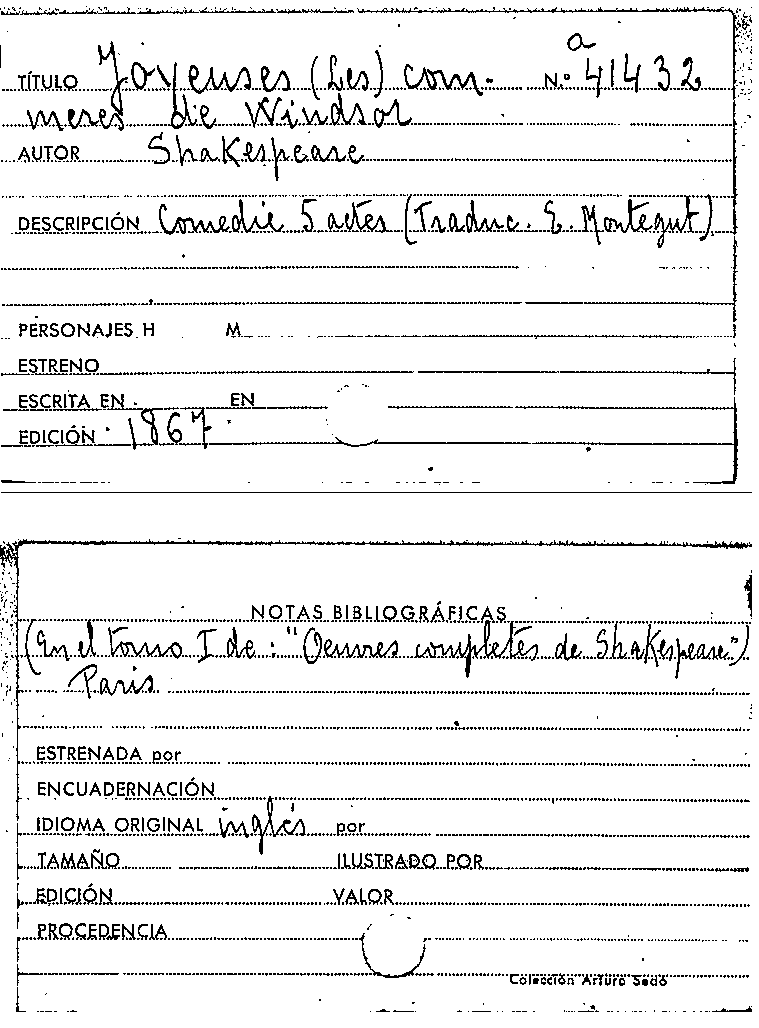 a
TÍTULO Joyeuses (Les) com- N.º 41432
meres de Windsor
AUTOR Shakespeare
DESCRIPCIÓN Comedie 5 actes (Traduc. E. Montegut)
PERSONAJES H M
ESTRENO
ESCRITA EN EN
EDICIÓN 1867
NOTAS BIBLIOGRÁFICAS
(En el tomo I de: "Oeuvres completes de Shakespeare")
Paris
ESTRENADA por
ENCUADERNACIÓN
IDIOMA ORIGINAL inglés por
TAMAÑO ILUSTRADO POR
EDICIÓN VALOR
PROCEDENCIA
Colección Arturo Sedó